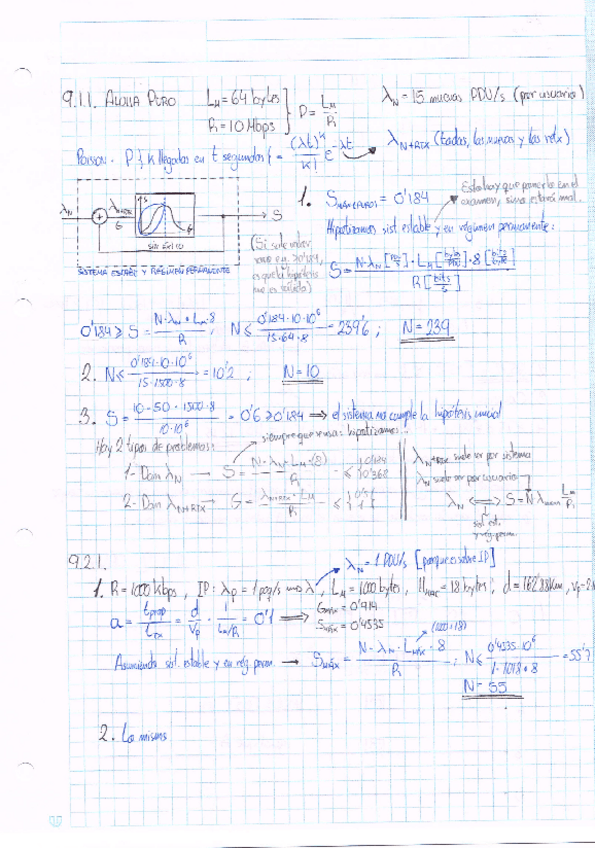 9.1.1. ALOHA PURO L_M = 64 bytes λ_N = 15 nuevas PDU/s (por usuario)
R = 10 Mbps D = L_M/R
POISSON. P{K llegadas en t segundos} = (λt)^K/K! e^-λt λ_N+RTX (todas, las nuevas y las retx)
λ_N λ_N+RTX G S
SISTEMA ESTABLE Y RÉGIMEN PERMANENTE
1. S = 0'184
Esto hay que ponerlo en el examen, sino estará mal.
Hipotizamos sist estable y en régimen permanente:
S = N·λ_N·L_M·8 [bits/byte] / R [bits/s]
0'184 ≥ S = N·λ_N·L_M·8/R ; N ≤ 0'184·10·10^6/15·64·8 = 239'6 ; N = 239
2. N ≤ 0'184·10·10^6/15·1500·8 = 10'2 ; N = 10
3. S = 10·50·1500·8/10·10^6 = 0'6 ≥ 0'184 ⟹ el sistema no cumple la hipótesis inicial
Hay 2 tipos de problemas:
siempre que se usa: hipotizamos...
1- Dan λ_N → S = N·λ_N·L_M·8/R ≤ {0'184 0'368
2- Dan λ_N+RTX → G = λ_N+RTX·L_M/R ≤ {0'5 1
λ_N+RTX suele ser por sistema
λ_N suele ser por usuario
λ_N ⟺ S = N λ L/R
sist est. y rég. perm.
9.2.1.
λ_N = 1 PDU/s [porque es sobre IP]
1. R = 1000 kbps, IP: λ_p = 1 paq/s, L_M = 1000 bytes, H_MAC = 18 bytes, d = 162'88 Km, v_p = 2
a = t_prop/t_tx = d/v_p · 1/L_M/R = 0'1 ⟹ G_máx = 0'914
S_máx = 0'4535
(1000+18)
Asumiendo sist. estable y en rég. perm. → S_máx = N·λ_N·L_máx·8/R ; N ≤ 0'4535·10^6/1·1018·8 = 55'7
N = 55
2. Lo mismo